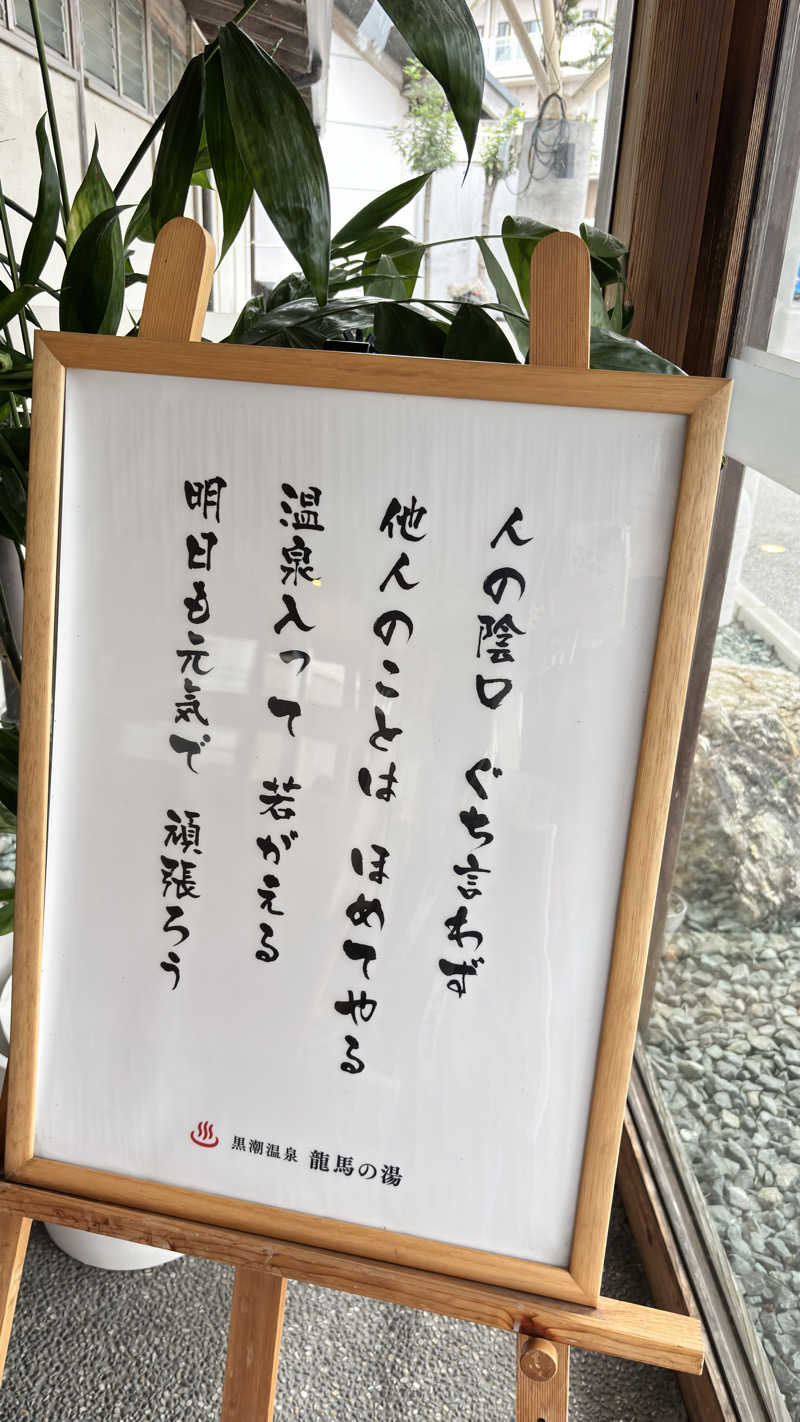 人の陰口　ぐち言わず
他人のことは　ほめてやる
温泉入って　若がえる
明日も元気で　頑張ろう
黒潮温泉 龍馬の湯